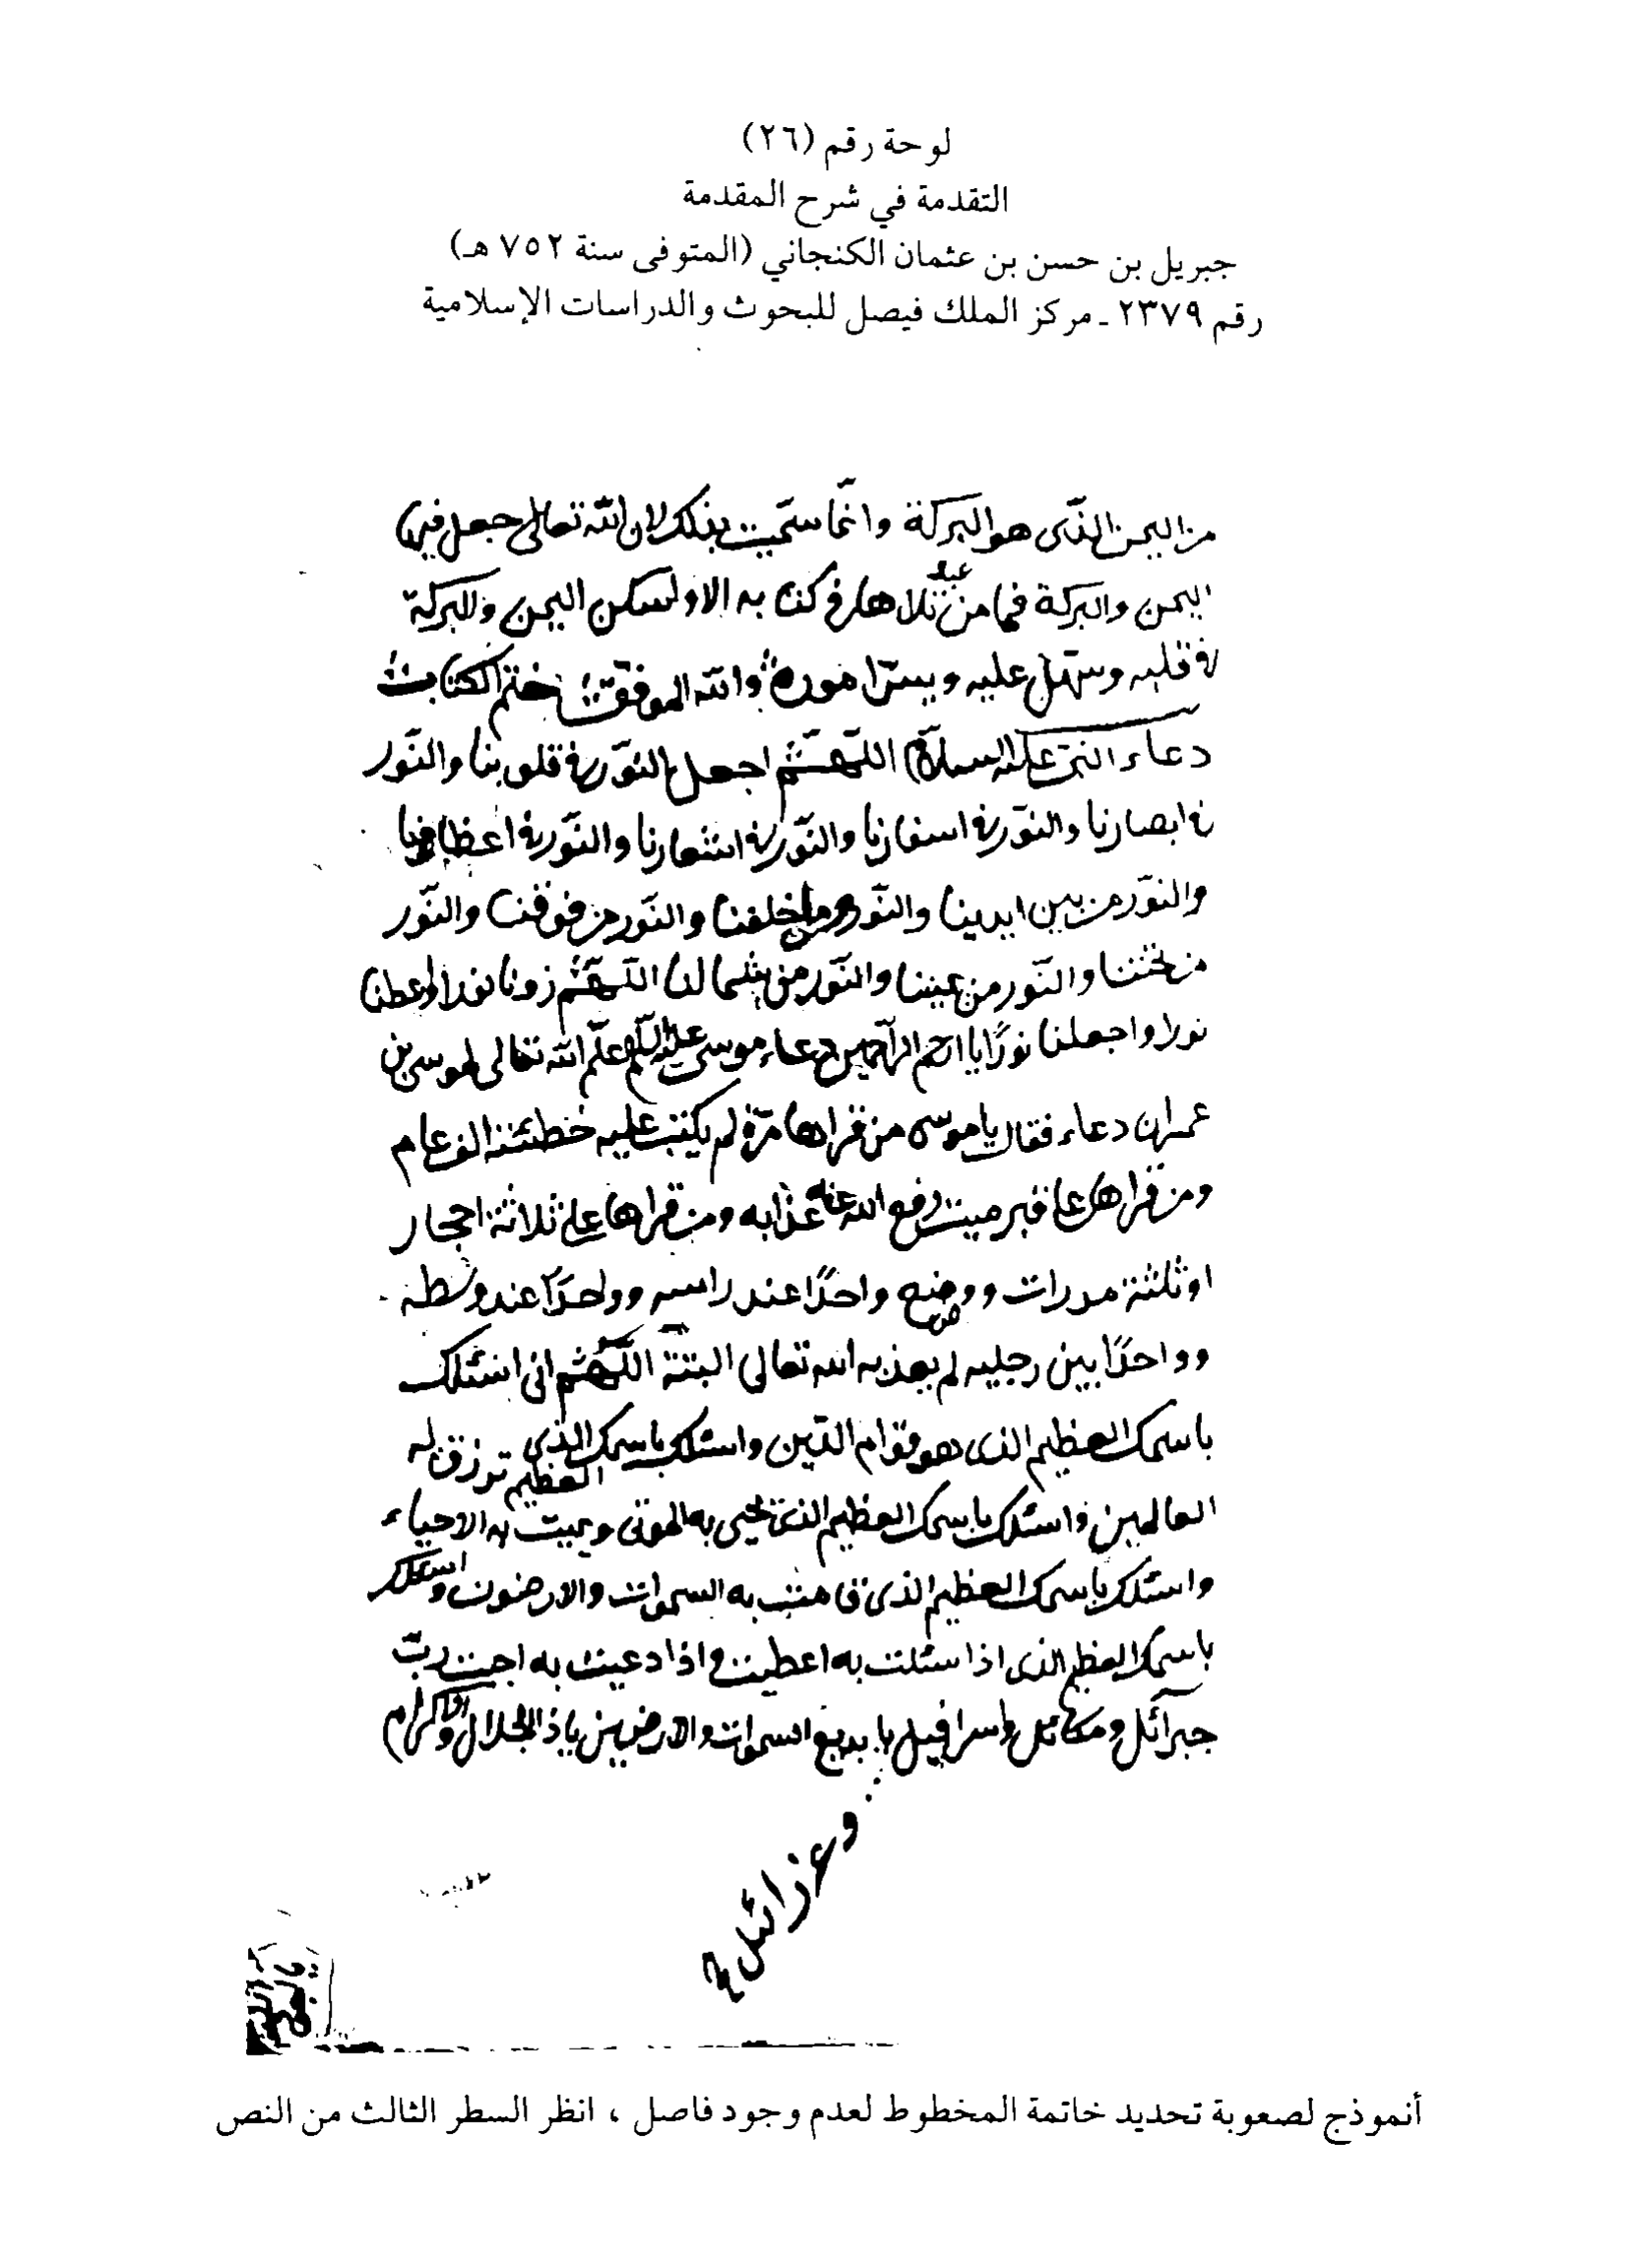 لوحة رقم (٢٦)
التقدمة في شرح المقدمة
جبريل بن حسن بن عثمان الكنجاني (المتوفى سنة ٧٥٢ هـ)
رقم ٢٣٧٩ ـ مركز الملك فيصل للبحوث والدراسات الإسلامية
من اليمن الذى هو البركة وانما سمّيت بذلك لان الله تعالى جعل فيها
اليمن والبركة فما من عبد تلاها فى كتابه الا ولسكن اليمن والبركة
فى قلبه وسهّل عليه ويسّر اموره والله الموفق ختم الكتاب
دعاء النبى عليه السلام اللهم اجعل النّور فى قلوبنا والنّور
فى ابصارنا والنور فى اسفارنا والنّور فى اشعارنا والنّور فى اعظامنا
والنّور من بين ايدينا والنّور من خلفنا والنّور من فوقنا والنّور
من تحتنا والنّور من يميننا والنّور من شمالنا اللهم زدنا نورا واعطنا
نورا واجعلنا نورًا يا ارحم الراحمين دعاء موسى عليه السلام علّم الله تعالى لموسى بن
عمران دعاء فقال يا موسى من قراها مرّة لم يكتب عليه خطئته الف عام
ومن قراها على قبر ميت رفع الله عنه عذابه ومن قراها على ثلاثة احجار
او ثلثة مدرات ووضع واحدًا عند راسه وواحدًا عند وسطه
وواحدًا بين رجليه لم يعذبه الله تعالى البتة اللّهم انى اسئلك
باسمك العظيم الذى هو قوام الدّين واسئلك باسمك العظيم الذى ترزق به
العالمين واسئلك باسمك العظيم الذى تحيى به الموتى ويميت به الاحياء
واسئلك باسمك العظيم الذى قامت به السموات والارضون واسئلك
باسمك العظيم الذى اذا سئلت به اعطيت واذا دعيت به اجبت ربّ
جبرائل ومكائل واسرافيل يا بديع السموات والارضين يا ذا الجلال والاكرام
وعزرائل
أنموذج لصعوبة تحديد خاتمة المخطوط لعدم وجود فاصل ، انظر السطر الثالث من النص